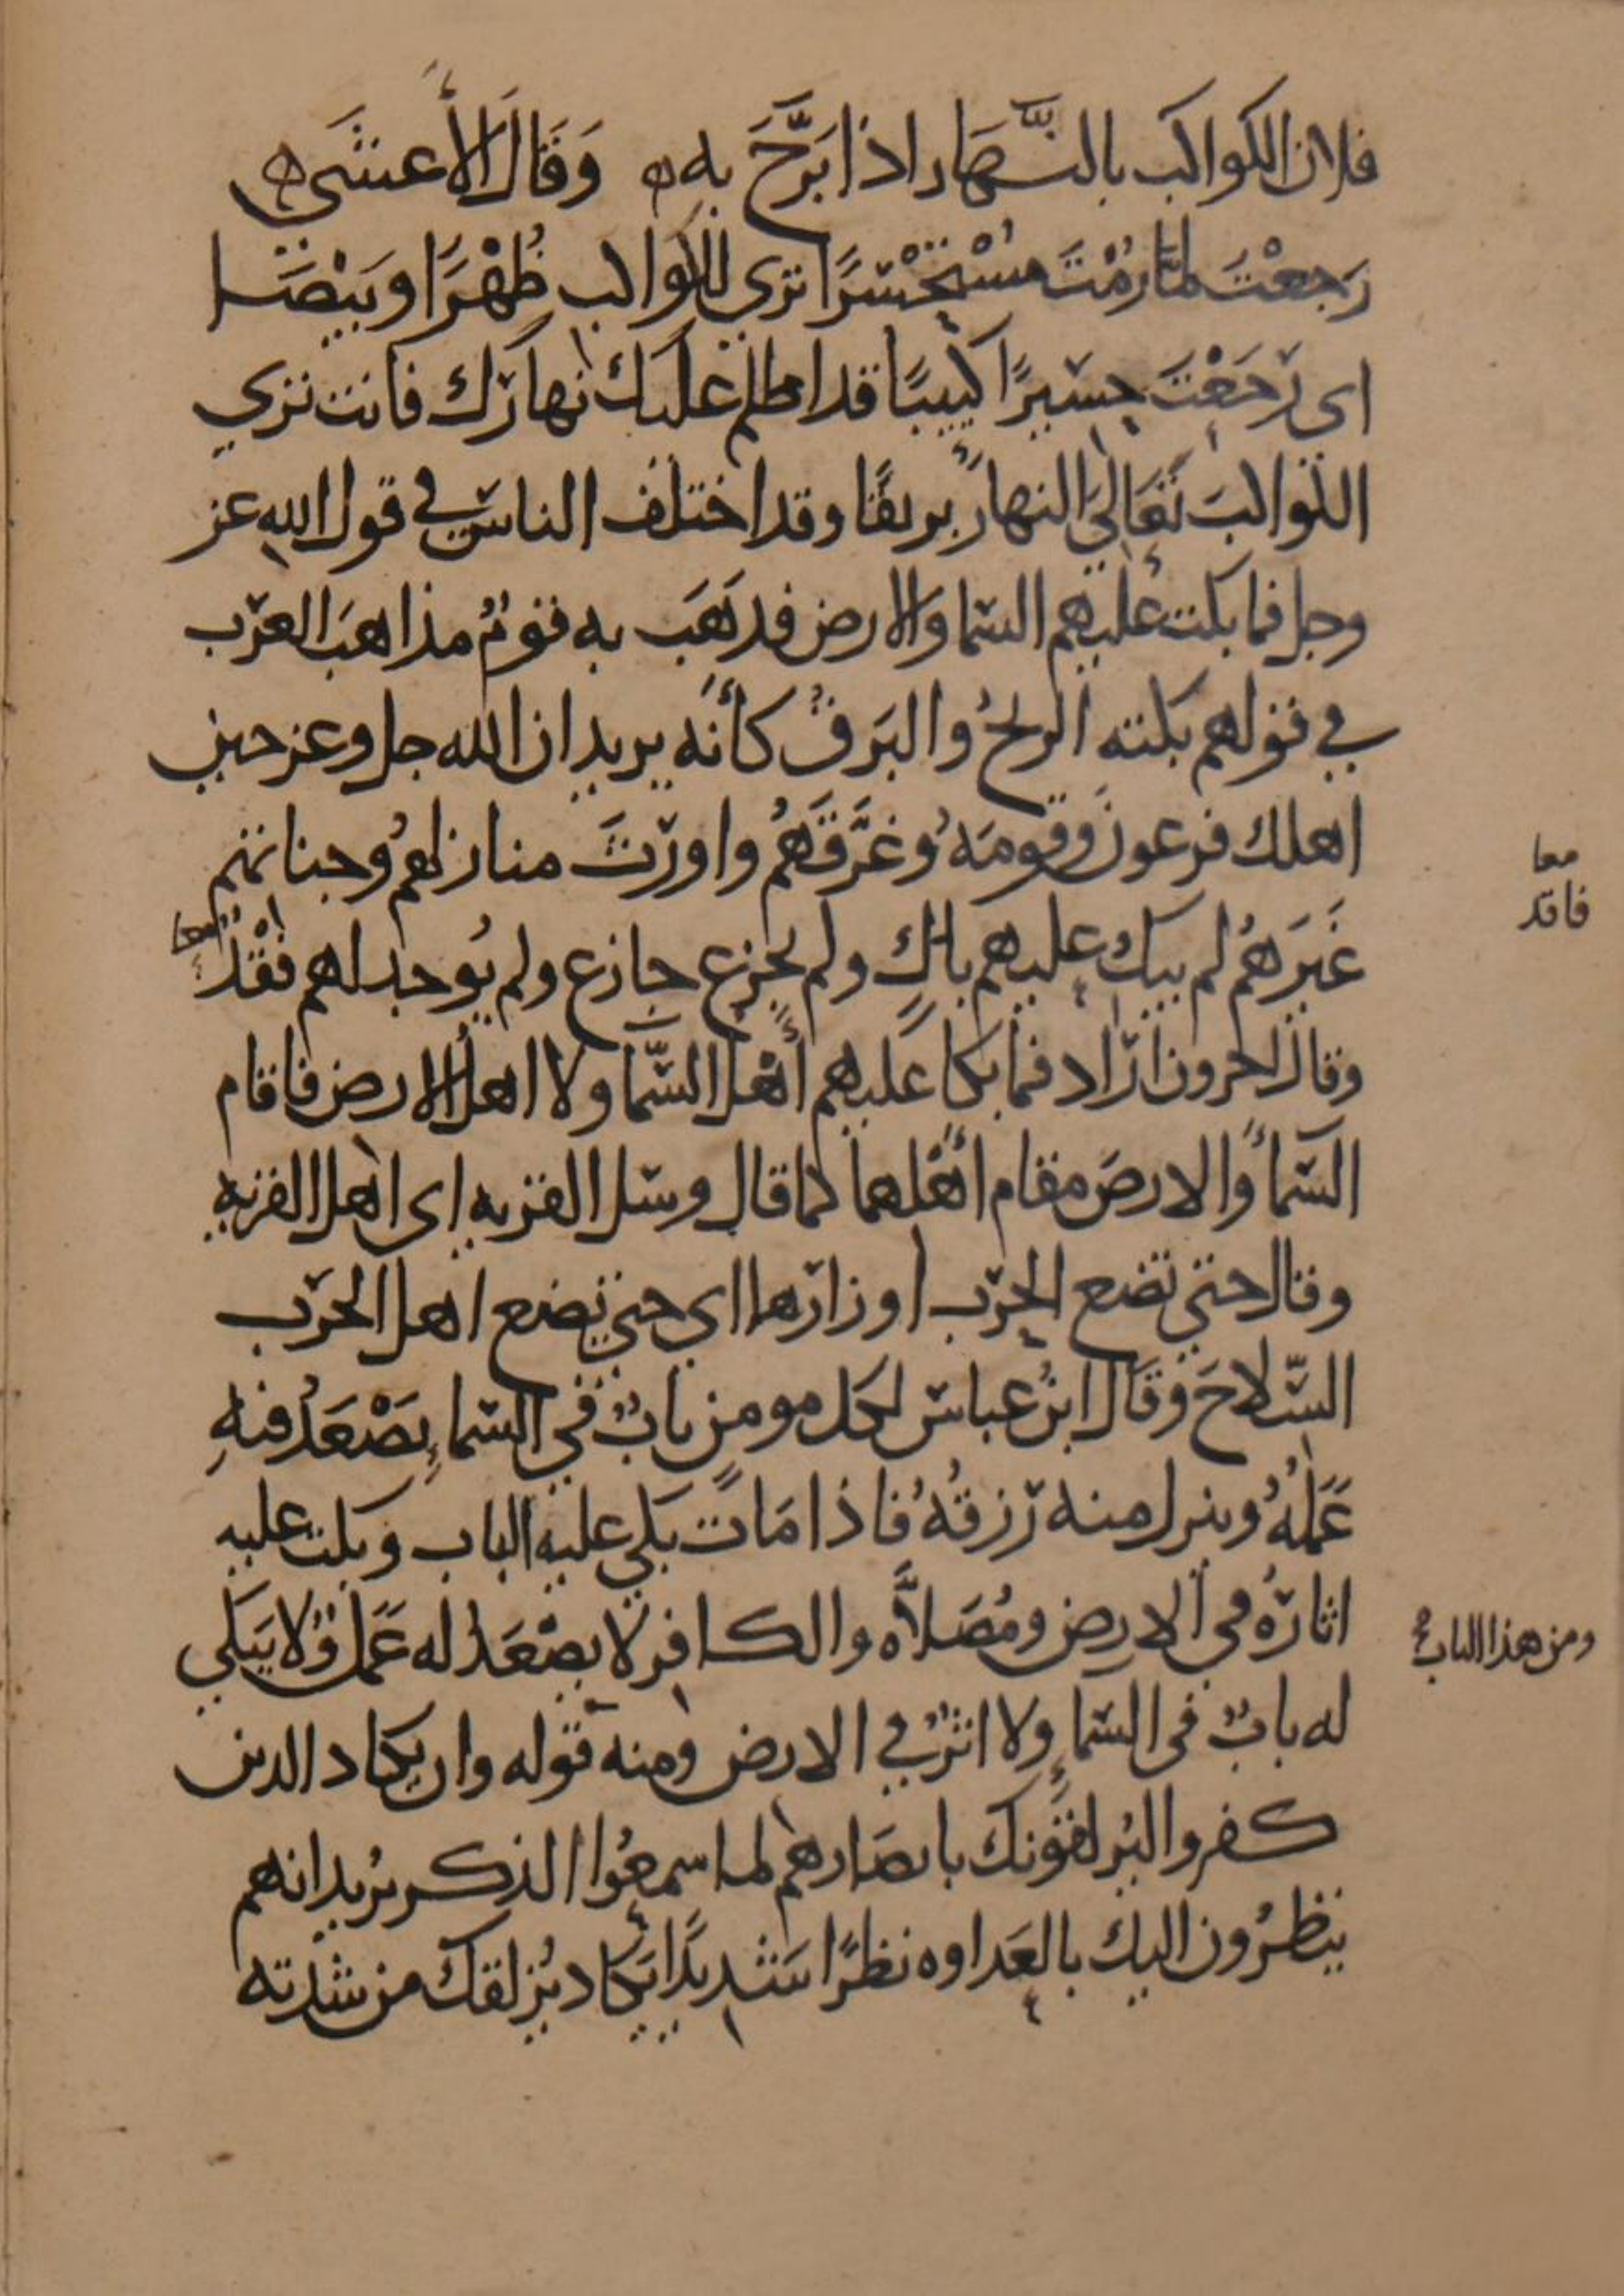 فلان الكواكب بالنَّهَار اذا بَرَّحَ به ه وَقَالَ الأَعشَى ه
رَجعْتَ لمَّا رُمْتَ مُسْتَحْسَرًا تري للكواكب ظُهْرًا وَبِيْصَا
اي رَجَعْتَ حسيرًا كئيبًا قد اظلم عليك نهارك فانت تري
الكواكبَ تَعَالِيَ النهار بريقًا وقد اختلف الناس في قول الله عز
وجل فما بكت عليهم السما وَالارض فذَهَب به قومٌ مذاهبَ العرب
في قولهم بكته الريحُ والبَرقُ كأنه يريد ان الله جل وعز حين
اهلك فرعون وقومَهُ وغَرَّقَهُم واورَثَ منازلهم وجناتهم
غَيرَهُم لم يبك عليهم باكٍ ولم يجزع جازع ولم يُوجد لهم فَقْدٌ معا
وقال اخرون اراد فما بكا عليهم أهل السَّما ولا اهل الارض فاقام
السَّمأ والارضَ مقام اهلهما كما قال وسل القريه اي اهل القريه
وقال حتي تضع الحرب اوزارها اي حتي يضع اهل الحرب
السِّلاحَ وقَال ابنُ عباس لكل مومن بابٌ في السماءِ يَصْعَدُ فيهِ
عَمَلُهُ وينزل منه رزقُهُ فاذا مَات بكي عليه الباب وبكت عليه
اثارُهُ في الارض ومُصَلاَّه والكافر لا يصْعَد له عَمَلٌ ولا يَبكي
له بابٌ في السماءِ ولا اثرٌ في الارض ومنه قوله وان يكاد الذين
كفروا ليُزلقونك بابصَارهم لما سمعُوا الذكر يُريد انهم
ينظرُون اليك بالعَداوه نظرًا شديدًا يَكاد يُزلقك من شدته
معا
فاقد
ومن هذا الباب